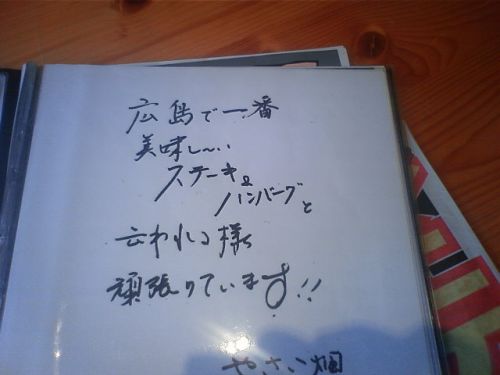 広島で一番
美味し〜い
ステーキ&
ハンバーグと
云われる様
頑張りています!!
やさい畑